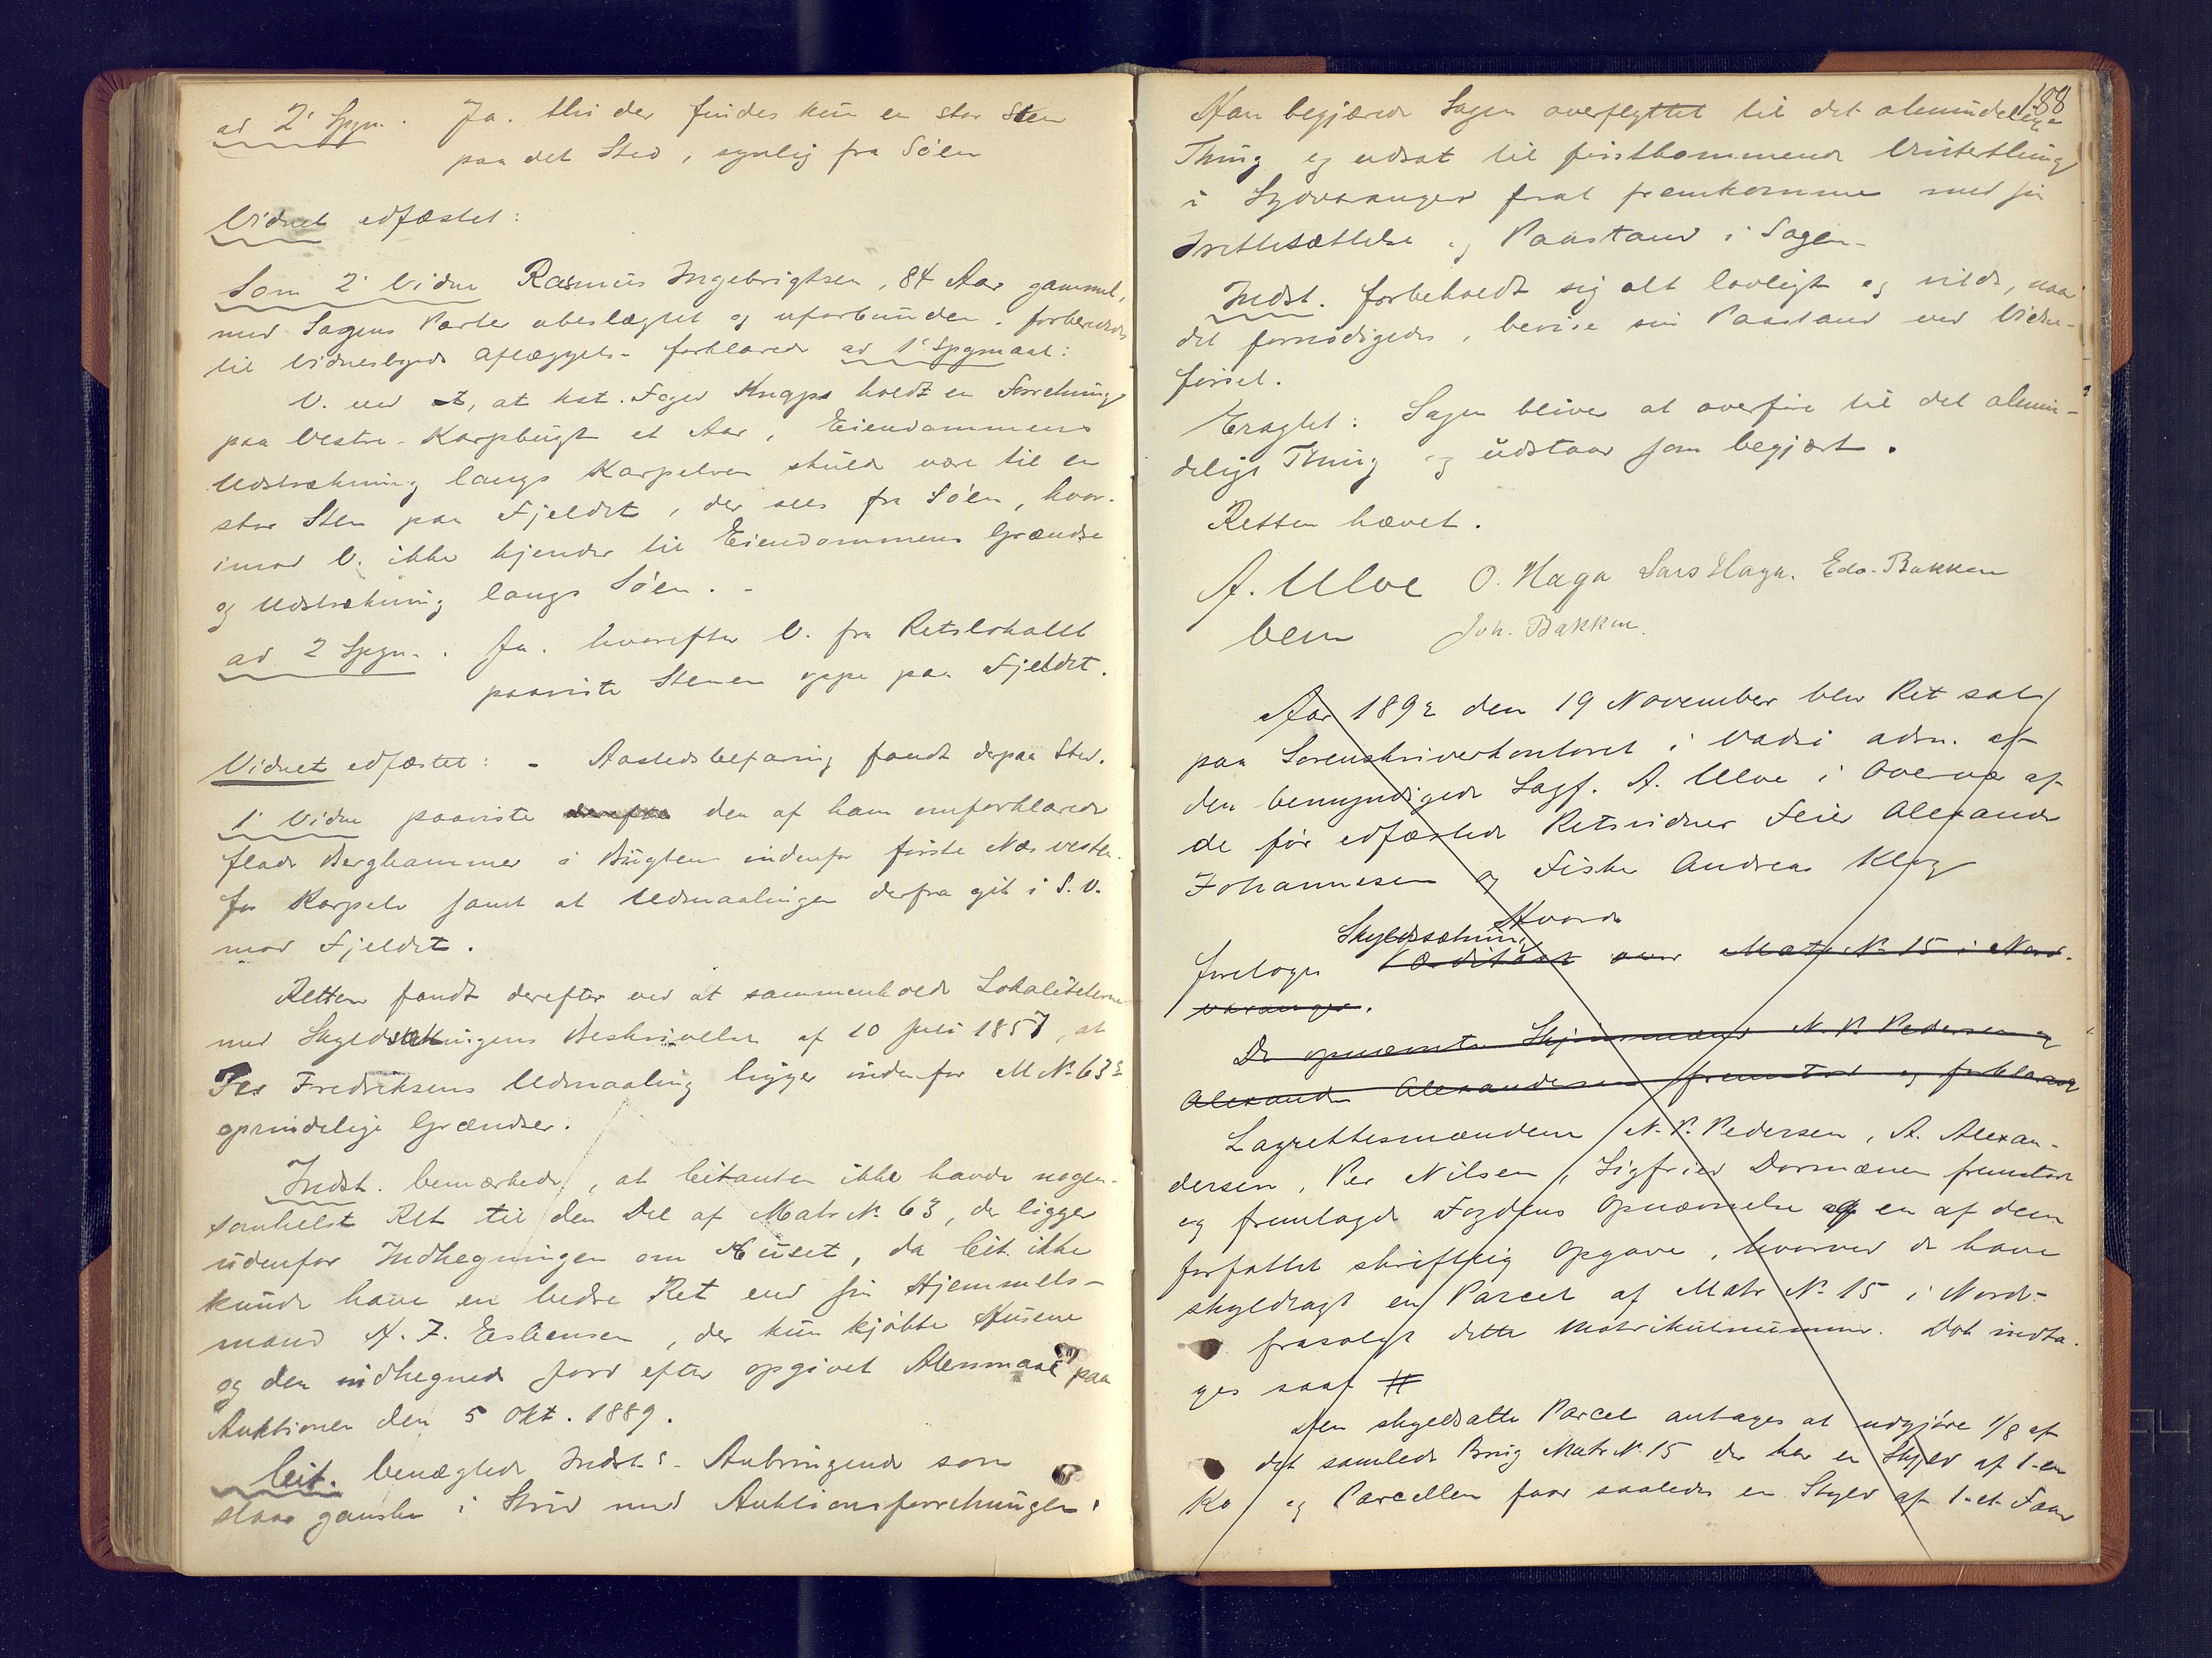 ad 2' Spgm. Ja. thi der findes kun en stor Sten
paa det Sted, synlig fra Søen
Vidnet edfæstet:
Som 2' Vidne Rasmus Ingebrigtsen, 84 Aar gammel,
med Sagens Parter ubeslægtet og uforbunden. forberedes
til Vidnesbyrds Aflæggelse forklarede ad 1' Spgmaal:
V. ved at, at kst. Foged Knaps holdt en Forretning
paa Vestre-Karpbugt et Aar, Eiendommens
Udstrækning langs Karpelven skulde være til en
stor Sten paa Fjeldet, der sees fra Søen, hvor-
imod V. ikke kjender til Eiendommens Grændse
og Udstrækning langs Søen. -
ad 2 Spgm. Ja. hvorefter V. fra Retslokalet
paaviste Stenen oppe paa Fjeldet.
Vidnet edfæstet: - Aastedsbefaring fandt derpaa Sted.
1' Vidne paaviste derefter den af ham omforklarede
flade Berghammer i Bugten indenfor første Næs vesten-
for Karpelv samt at Udmaalingen derfra gik i S.V.
mod Fjeldet.
Retten fandt derefter ved at sammenholde Lokaliteterne
med Skyldsætningens Beskrivelse af 10 Juli 1857, at
Per Fredriksens Udmaaling ligger indenfor M N. 63s
oprindelige Grændser.
Indst. bemærkede, at Citanten ikke havde nogen-
somhelst Ret til den Del af Matr N. 63, der ligger
udenfor Indhegningen om Huset, da Cit. ikke
kunde have en bedre Ret end sin Hjemmels-
mand A. F. Esbensen, der kun kjøbte Husene
og den indhegnede Jord efter opgivet Alenmaal paa
Auktionen den 5 Okt. 1889.
Cit. benægtede Indst.s Anbringende som
staar ganske i Strid med Auktionsforretningen.
188
Han begjærede Sagen overflyttet til det almindelige
Thing og udsat til førstkommende Vinterthing
i Sydvaranger forat fremkomme med sin
Irettesættelse og Paastand i Sagen.
Indst. forbeholdt sig alt lovligt og vilde, naar
det fornødigedes, bevise sin Paastand ved Vidne-
førsel.
Eragtet: Sagen bliver at overføre til det almin-
delige Thing og udstaar som begjært.
Retten hævet.
A. Ulve O. Haga Lars Haga. Edv. Bakken
bem Joh. Bakken.
Aar 1892 den 19 November blev Ret sat
paa Sorenskriverkontoret i Vadsø adm. af
den bemyndigede Sagf. A. Ulve i Overvær af
de før edfæstede Retsvidner Feier Alexander
Johannesen og Fisker Andreas Klog
Hvorda
Skyldsætning
foretoges Værditaxt over Matr N. 15 i Nord-
varanger.
De opnævnte Skjønsmænd N. P. Pedersen og
Alexander Alexandersen fremstod og forklarede
Lagrettesmændene N. P. Pedersen, A. Alexan-
dersen, Per Nilsen, Sigfried Dormænen fremstod
og fremlagde Fogdens Opnævnelse og en af dem
forfattet skriftlig Opgave, hvorved de have
skyldlagt en Parcel af Matr N. 15 i Nord-
frasolgt dette Matrikulnummer. Dok indta-
ges saal #
Den skyldsatte Parcel antages at udgjøre 1/8 af
det samlede Brug Matr N. 15 der har en Skyld af 1- en
Ko og Parcellen faar saaledes en Skyld af 1- et Faar